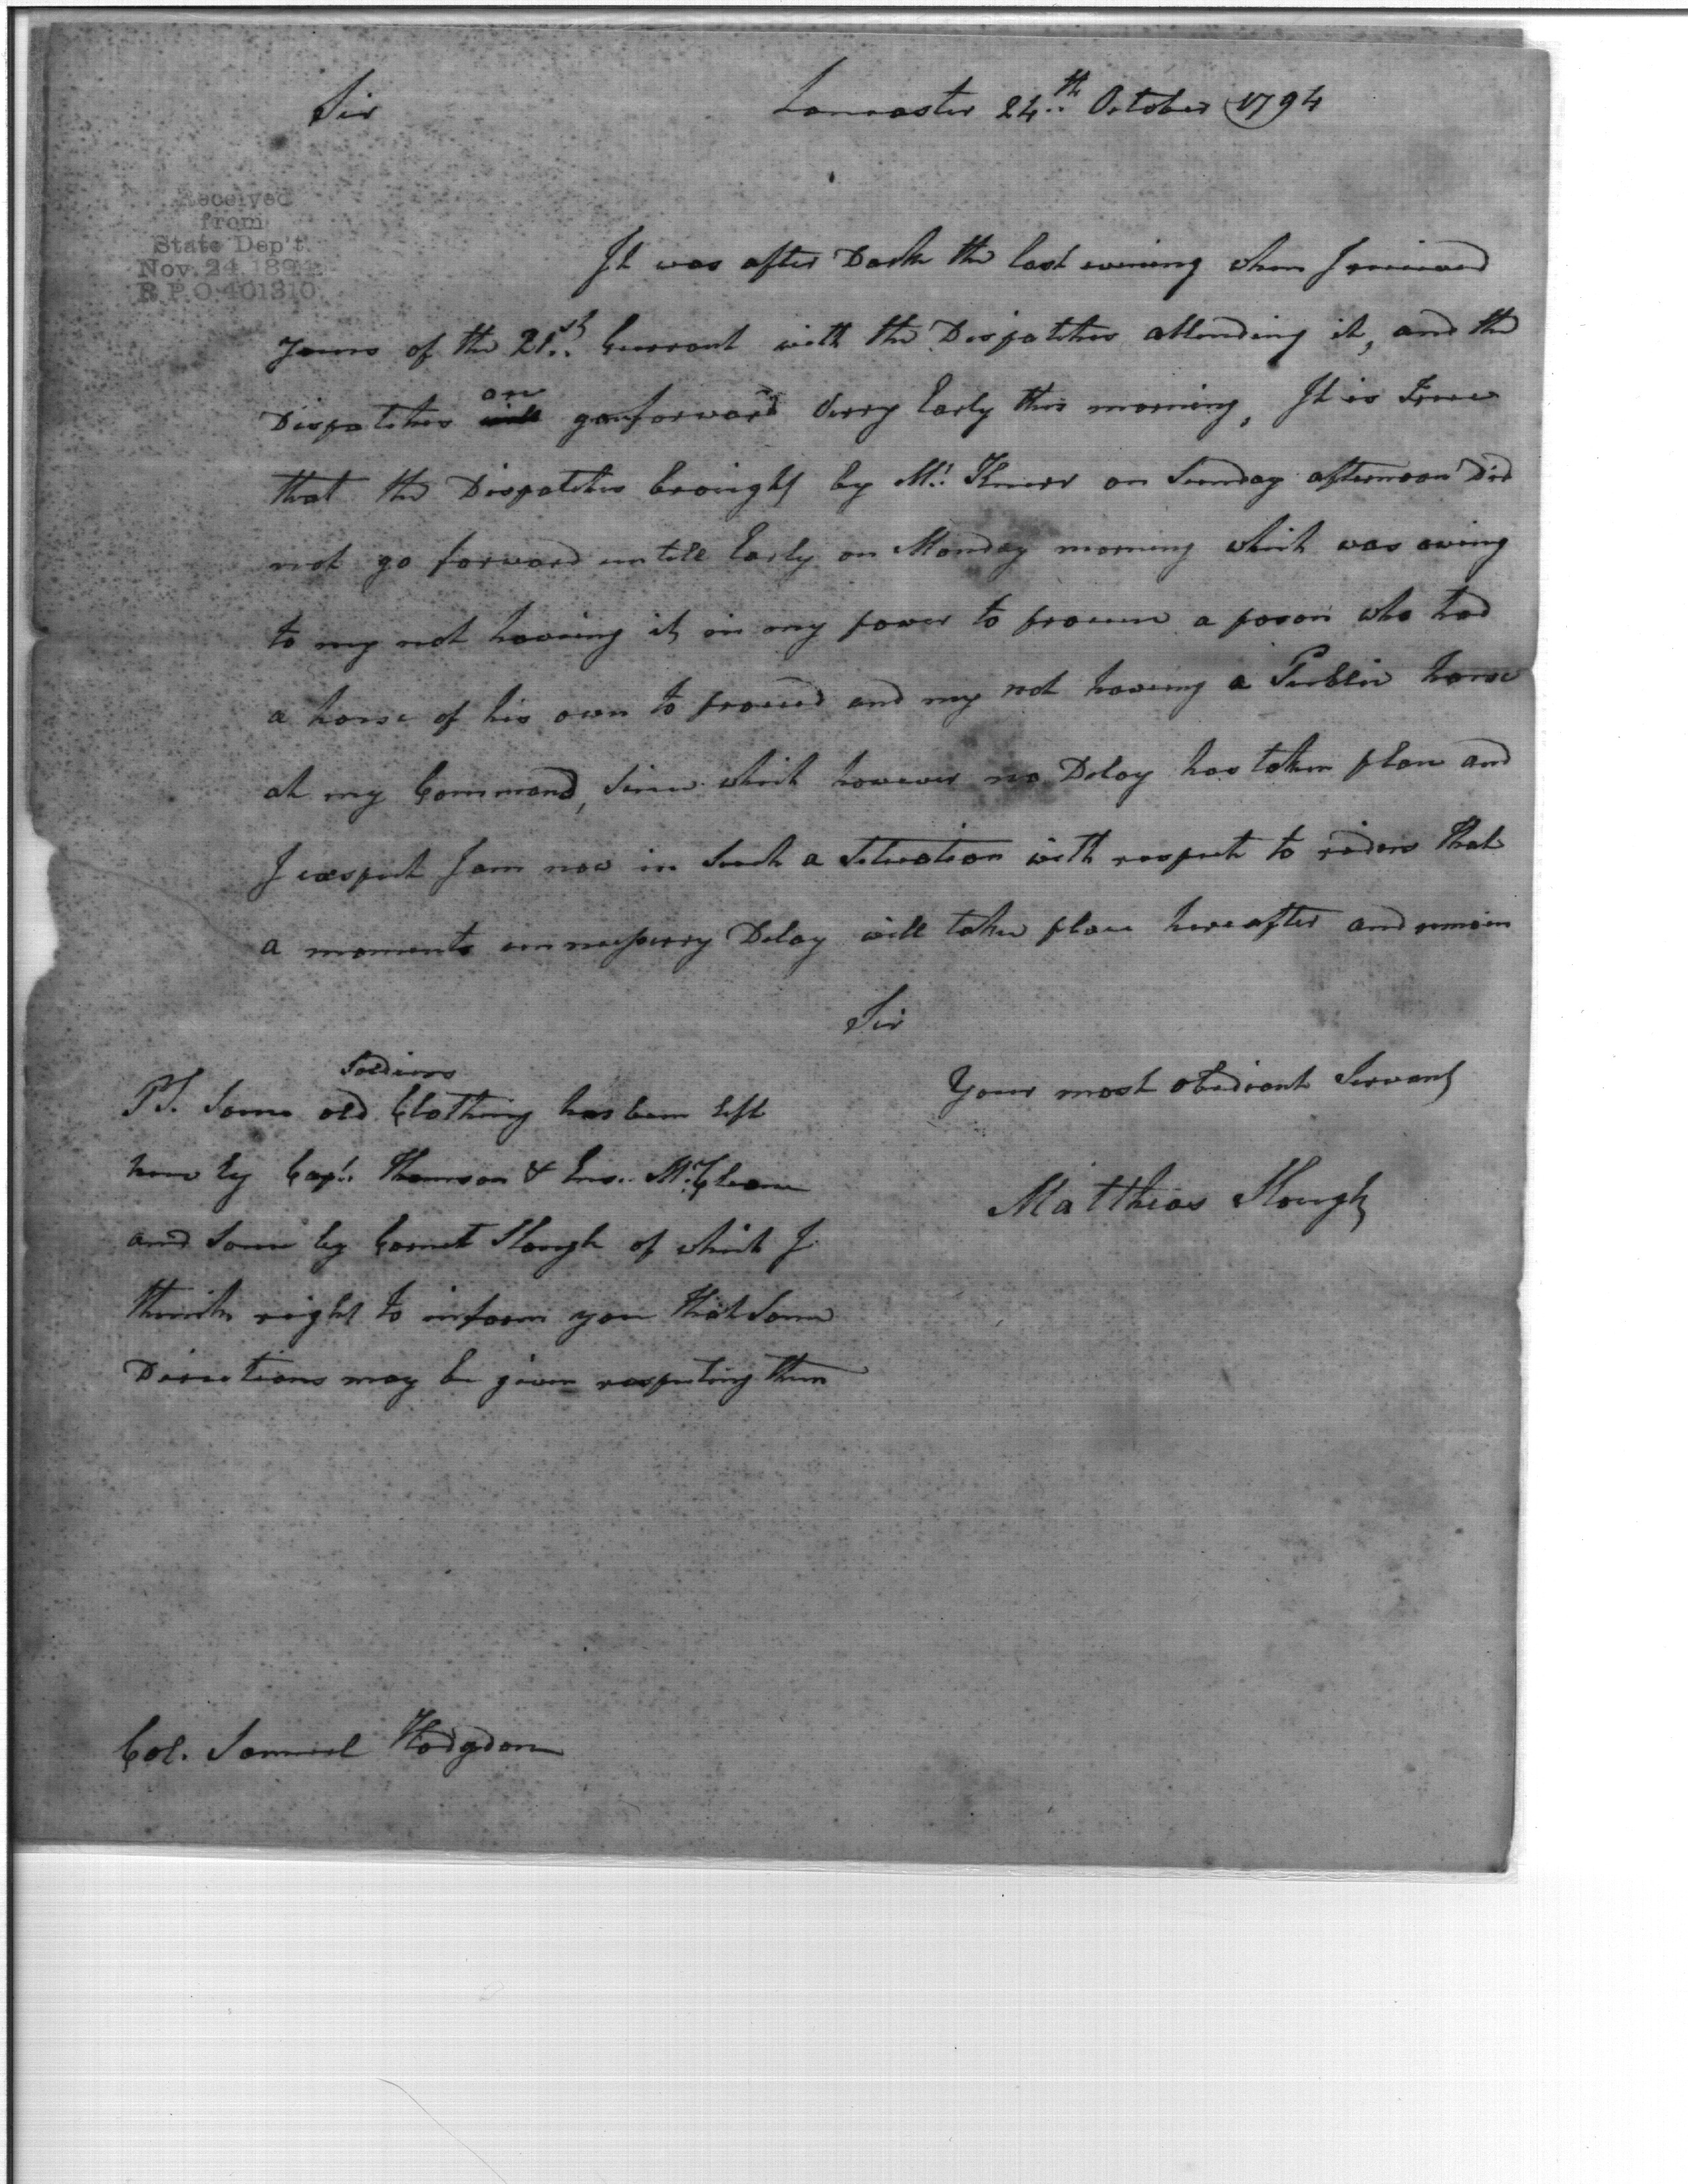 Sir
Lancaster 24th October 1794
Received
from
State Dep't.
Nov. 24, 1894
R.P.O. 401310.
It was after Dark the last evening when I received
yours of the 21st Currant with the Dispatches attending it, and the
on
Dispatches will gon forward Verry Early this morning, It is True
that the Dispatches brought by Mr. on Sunday afternoon Did
not go forward untill Early on Monday morning which was owing
to my not haveing it in my power to procure a person who had
a horse of his own to proceed and my not haveing a Publir horse
at my Command, Since which however no Delay has taken place and
I exspect I am now in Such a Situation with respect to riders that
a moments unnecessery Delay will take place hereafter and remain
Sir
Soldiers
PS. Some old Clothing has been left
here by Capt. Thomson & Ens. McCleane
and Some by Cornet Slough of which I
think right to inform you that Some
Directions may be given respecting them
Your most obediant Servant
Matthias Slough
Col. Samuel Hodgdon